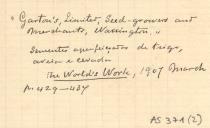 "Garton's, Limited, Seed-growers and
Merchants, Warrington,"
Sementes aperfeiçoadas de trigo,
aveia e cevada
The World's Work, 1907 March
p. 429-434
AS 371 (2)